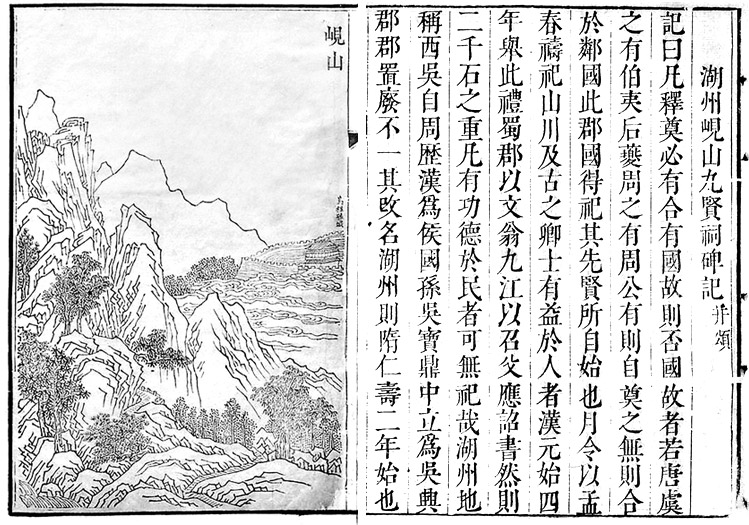 湖州峴山九賢祠碑記 并頌
記曰凡釋奠必有合有國故則否國故者若唐虞
之有伯夷后夔周之有周公有則自奠之無則合
於鄰國此郡國得祀其先賢所自始也月令以孟
春禱祀山川及古之卿士有益於人者漢元始四
年舉此禮蜀郡以文翁九江以召父應詔書然則
二千石之重凡有功德於民者可無祀哉湖州地
稱西吳自周歷漢爲侯國孫吳寶鼎中立爲吳興
郡郡置廢不一其改名湖州則隋仁壽二年始也
峴山